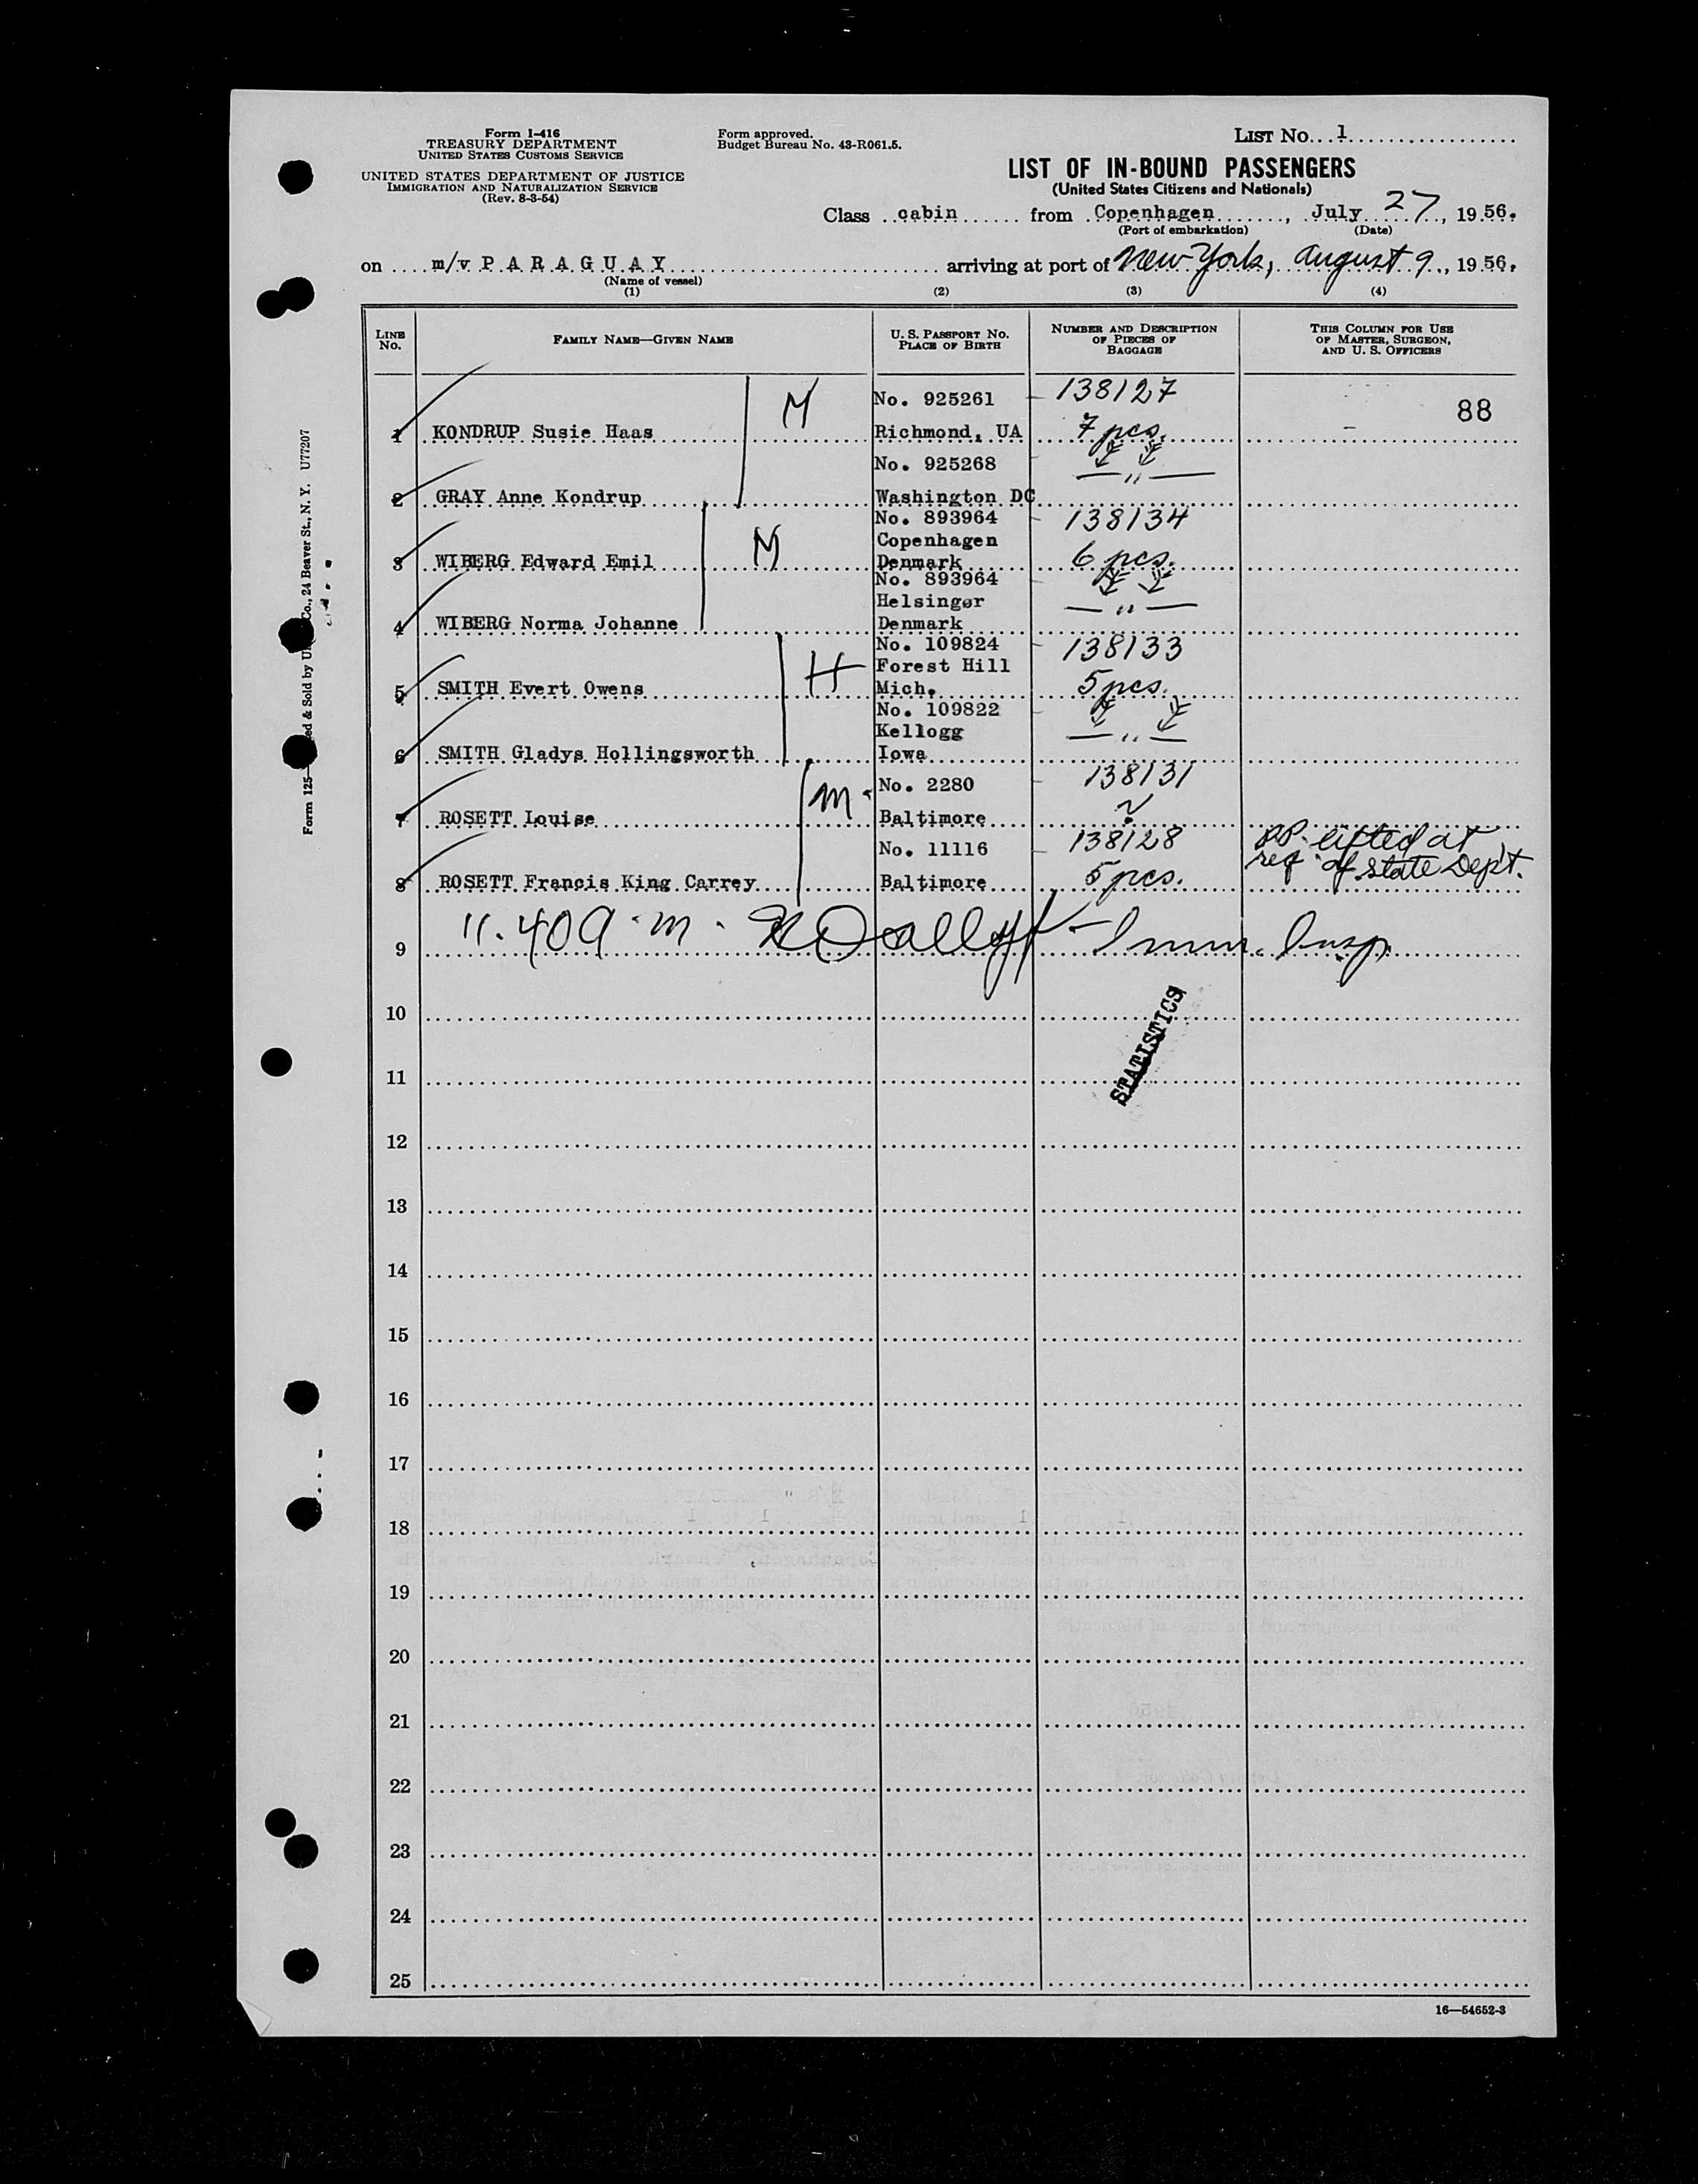 Form I-416
TREASURY DEPARTMENT
UNITED STATES CUSTOMS SERVICE
UNITED STATES DEPARTMENT OF JUSTICE
IMMIGRATION AND NATURALIZATION SERVICE
(Rev. 8-3-54)
Form approved.
Budget Bureau No. 43-R061.5.
LIST NO. 1
LIST OF IN-BOUND PASSENGERS
(United States Citizens and Nationals)
Class cabin from Copenhagen, July 27, 1956.
(Port of embarkation) (Date)
on m/v PARAGUAY arriving at port of New York, August 9, 1956.
(Name of vessel)
(1) (2) (3) (4)
LINE NO. FAMILY NAME—GIVEN NAME U. S. PASSPORT NO. PLACE OF BIRTH NUMBER AND DESCRIPTION OF PIECES OF BAGGAGE THIS COLUMN FOR USE OF MASTER, SURGEON, AND U. S. OFFICERS
M No. 925261 138127 88
1 KONDRUP Susie Haas Richmond, UA 7 pcs.
No. 925268 — " —
2 GRAY Anne Kondrup Washington DC
No. 893964 138134
M Copenhagen
3 WIBERG Edward Emil Denmark 6 pcs.
No. 893964
Helsingør — " —
4 WIBERG Norma Johanne Denmark
No. 109824 138133
H Forest Hill
5 SMITH Evert Owens Mich. 5 pcs.
No. 109822
Kellogg — " —
6 SMITH Gladys Hollingsworth Iowa
M No. 2280 138131
7 ROSETT Louise Baltimore ?
No. 11116 138128 PP. lifted at
8 ROSETT Francis King Carrey Baltimore 5 pcs. req. of State Dept.
9 11.40 a.m. Imm. Insp.
10
STATISTICS
11
12
13
14
15
16
17
18
19
20
21
22
23
24
25
16—54652-3
Form 125— Co., 24 Beaver St., N. Y. U77207